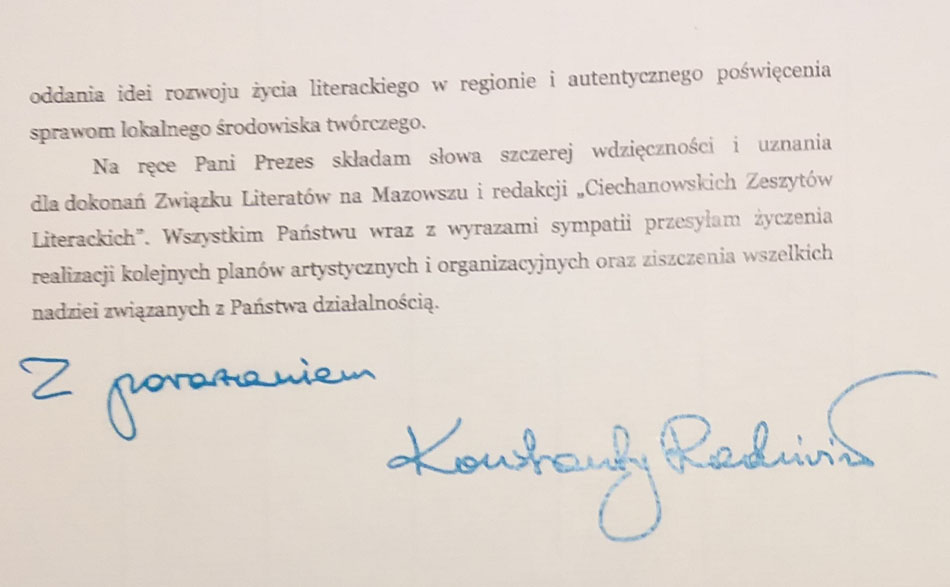 oddania idei rozwoju życia literackiego w regionie i autentycznego poświęcenia
sprawom lokalnego środowiska twórczego.
Na ręce Pani Prezes składam słowa szczerej wdzięczności i uznania
dla dokonań Związku Literatów na Mazowszu i redakcji „Ciechanowskich Zeszytów
Literackich”. Wszystkim Państwu wraz z wyrazami sympatii przesyłam życzenia
realizacji kolejnych planów artystycznych i organizacyjnych oraz ziszczenia wszelkich
nadziei związanych z Państwa działalnością.
Z poważaniem
Konstanty Radziwiłł